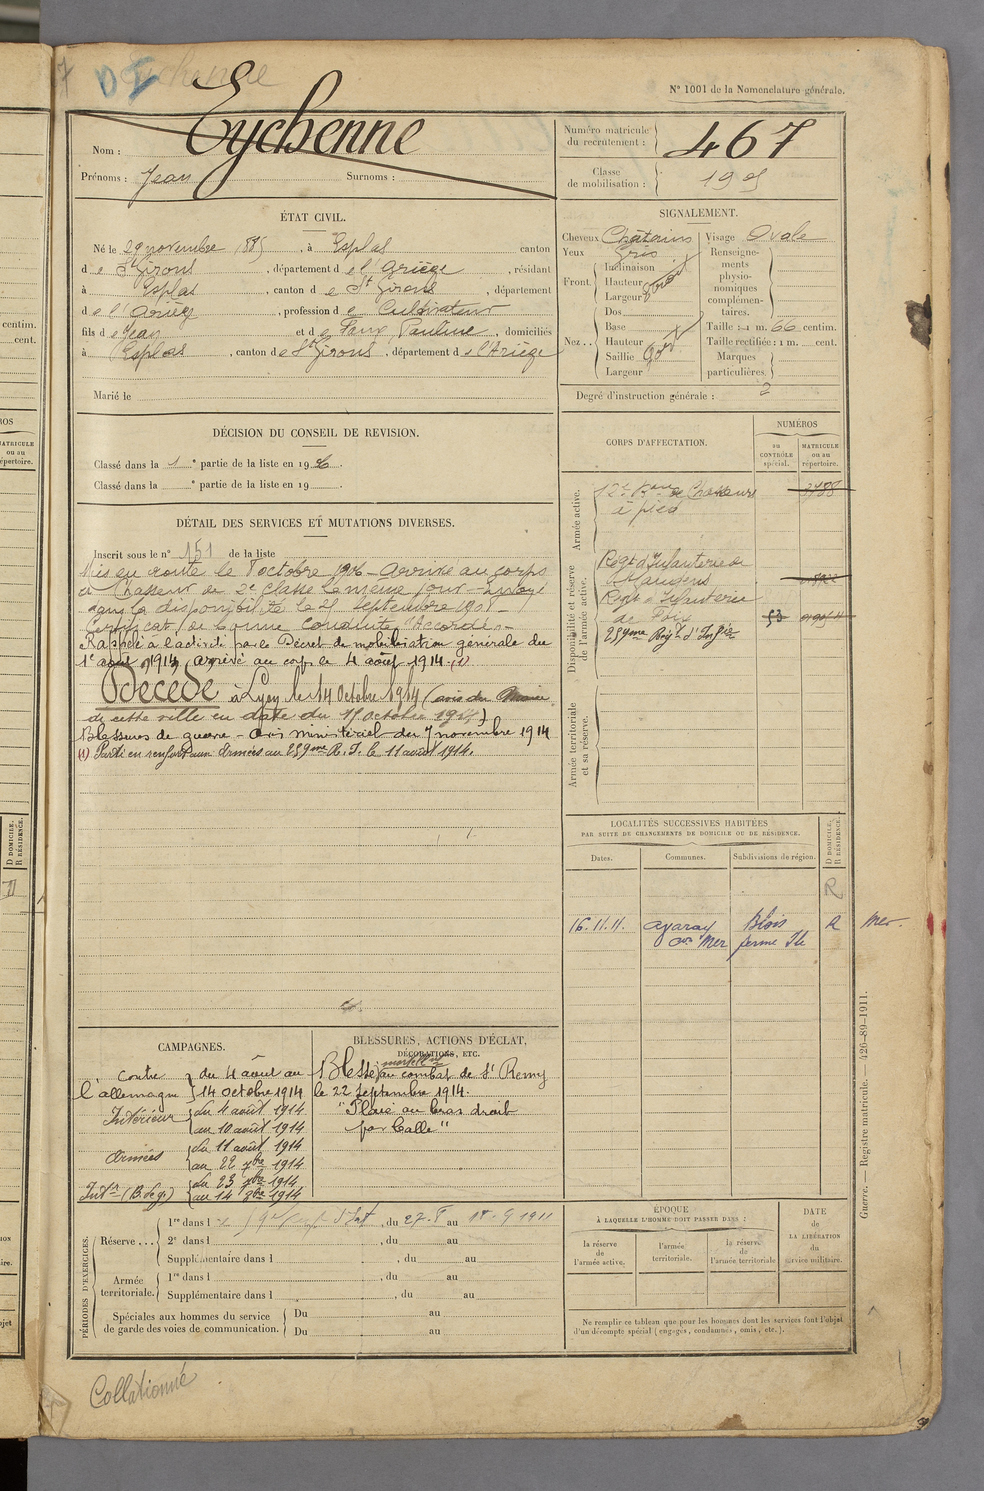 N° 1001 de la Nomenclature générale.
Eychenne
Nom :
Prénoms : Jean Surnoms :
Numéro matricule du recrutement : 467
Classe de mobilisation : 1905
ÉTAT CIVIL.
Né le 29 novembre 1885, à Esplas canton
de St Girons, département de l'Ariège, résidant
à Esplas, canton de St Girons, département
de l'Ariège, profession de Cultivateur
fils de Jean et de Faur Pauline, domiciliés
à Esplas, canton de St Girons, département de l'Ariège
Marié le
SIGNALEMENT.
Cheveux Châtains Visage Ovale
Yeux Gris
Front. Inclinaison
Hauteur
Largeur
Nez. Dos
Base
Hauteur
Saillie
Largeur
Renseignements physionomiques complémentaires.
Taille : 1 m. 66 centim.
Taille rectifiée : 1 m. cent.
Marques particulières.
Degré d'instruction générale : 2
DÉCISION DU CONSEIL DE REVISION.
Classé dans la 1e partie de la liste en 1906.
Classé dans la e partie de la liste en 19
DÉTAIL DES SERVICES ET MUTATIONS DIVERSES.
Inscrit sous le n° 151 de la liste
Mis en route le 8 octobre 1906 - arrivé au corps
et Chasseur de 2e classe le même jour - Envoyé
dans la disponibilité le 25 septembre 1908 -
Certificat de bonne conduite "Accordé" -
Rappelé à l'activité par le Décret de mobilisation générale du
1er août 1914, arrivé au corps le 4 août 1914. (1)
Décédé à Lyon le 14 Octobre 1914 (avis du Maire
de cette ville en date du 15 octobre 1914)
Blessures de guerre - avis ministériel du 7 novembre 1914
(1) Parti en renfort aux Armées au 259ème R. I. le 11 août 1914.
CORPS D'AFFECTATION.
NUMÉROS
au CONTRÔLE spécial.
MATRICULE ou au répertoire.
Armée active.
12e Bon de Chasseurs
à pied
3788
Disponibilité et réserve de l'armée active.
Régt d'Infanterie de
St Gaudens
Régt d'Infanterie
de Foix
53
259ème Rég.t d'Inf.ie
Armée territoriale et sa réserve.
LOCALITÉS SUCCESSIVES HABITÉES
PAR SUITE DE CHANGEMENTS DE DOMICILE OU DE RÉSIDENCE.
Dates. Communes. Subdivisions de région. D DOMICILE, R RÉSIDENCE.
R
16.11.11. Avaray Blois R Mer.
Mer ferme
CAMPAGNES.
Contre l'allemagne du 4 août au
14 octobre 1914
Intérieur du 4 août 1914
au 10 août 1914
Armées du 11 août 1914
au 22 7bre 1914
Intr (B. de g.) du 23 7bre 1914
au 14 8bre 1914
BLESSURES, ACTIONS D'ÉCLAT, DÉCORATIONS, ETC.
Blessé mortellt au combat de St Remy
le 22 Septembre 1914.
"Plaie au bras droit
par balle"
PÉRIODES D'EXERCICES.
Réserve... 1re dans l , du 27-8 au 18-9 1911
2e dans l , du au
Supplémentaire dans l , du au
Armée territoriale. 1re dans l , du au
Supplémentaire dans l , du au
Spéciales aux hommes du service de garde des voies de communication. Du au
Du au
ÉPOQUE
À LAQUELLE L'HOMME DOIT PASSER DANS :
la réserve de l'armée active. l'armée territoriale. la réserve de l'armée territoriale
DATE de LA LIBÉRATION du service militaire.
Ne remplir ce tableau que pour les hommes dont les services font l'objet
d'un décompte spécial (engagés, condamnés, omis, etc.).
Guerre. — Registre matricule. — 426-89-1911.
Collationné